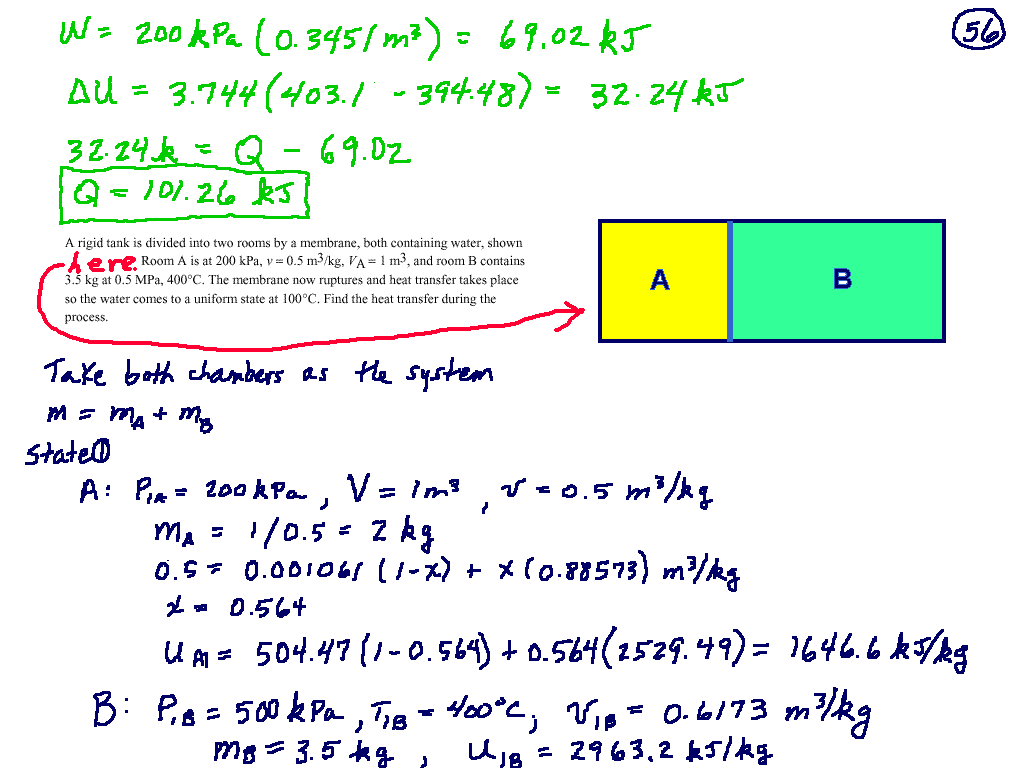 W = 200 kPa (0.3451 m³) = 69.02 kJ
56
ΔU = 3.744 (403.1 - 394.48) = 32.24 kJ
32.24 k = Q - 69.02
Q = 101.26 kJ
A rigid tank is divided into two rooms by a membrane, both containing water, shown
here. Room A is at 200 kPa, v = 0.5 m3/kg, VA = 1 m3, and room B contains
3.5 kg at 0.5 MPa, 400°C. The membrane now ruptures and heat transfer takes place
so the water comes to a uniform state at 100°C. Find the heat transfer during the
process.
A
B
Take both chambers as the system
m = mA + mB
State ①
A: P1A = 200 kPa, V = 1 m³, v = 0.5 m³/kg
mA = 1/0.5 = 2 kg
0.5 = 0.001061 (1-x) + x (0.88573) m³/kg
x = 0.564
UA1 = 504.47 (1 - 0.564) + 0.564 (2529.49) = 1646.6 kJ/kg
B: P1B = 500 kPa, T1B = 400°C; v1B = 0.6173 m³/kg
mB = 3.5 kg, U1B = 2963.2 kJ/kg